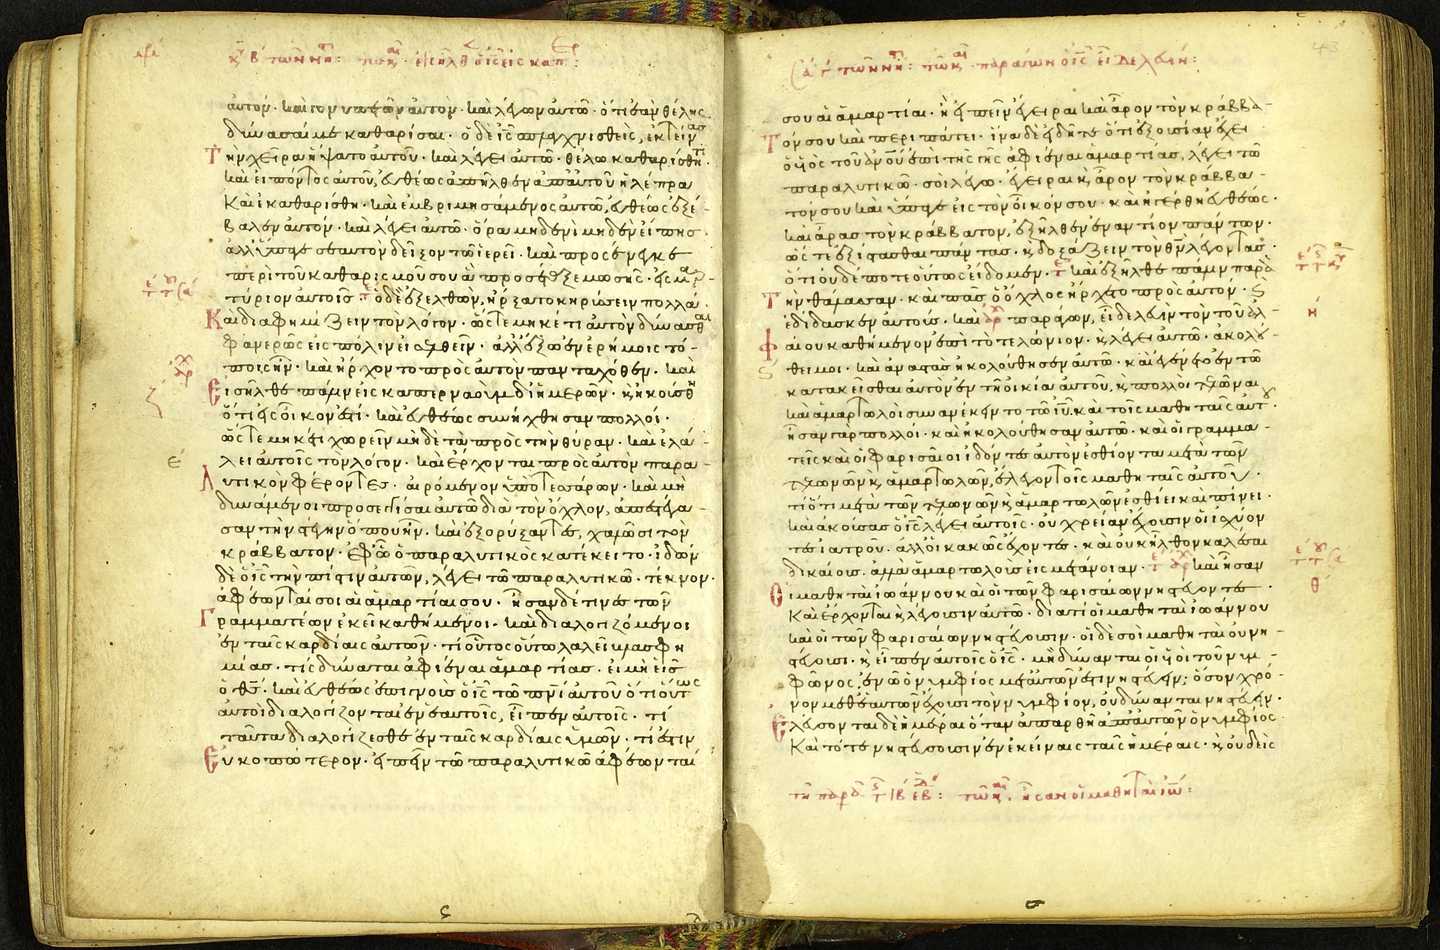 αὐτόν· καὶ γονυπετῶν αὐτὸν· καὶ λέγων αὐτῶ· ὅτι ἐὰν θέλης
δύνασαί με καθαρίσαι· ὁ δὲ ις σπλαγχνισθεὶς, ἐκτείνας
τὴν χεῖρα ἥψατο αὐτοῦ· καὶ λέγει αὐτῶ· θέλω καθαρίσθητι·
καὶ εἰπόντος αὐτοῦ, εὐθέως ἀπῆλθεν ἀπ αὐτοῦ ἡ λέπρα
Καὶ ἐκαθαρίσθη· καὶ ἐμβριμησάμενος αὐτῶ, εὐθέως ἐξέ-
βαλεν αὐτὸν· καὶ λέγει αὐτῶ· ὅρα μηδενὶ μηδὲν εἴπης·
ἀλλ ὕπαγε σεαυτὸν δεῖξον τῶ ἱερεῖ· καὶ προσένεγκε
περὶ τοῦ καθαρισμοῦ σου ἃ προσέταξε μωσῆς· εἰς μαρ-
τύριον αὐτοῖς· ὁ δὲ ἐξελθὼν, ἤρξατο κηρύσσειν πολλὰ·
Καὶ διαφημίζειν τὸν λόγον· ὥστε μηκέτι αὐτὸν δύνασθαι
φανερῶς εἰς πόλιν εἰσελθεῖν· ἀλλ ἔξω ἐν ἐρήμοις τό-
ποις ἦν· καὶ ἤρχοντο πρὸς αὐτὸν πανταχόθεν· καὶ
Εἰσῆλθε πάλιν εἰς καπερναοὺμ δι ἡμερῶν· κ ἠκούσθη
ὅτι εἰς οἶκον ἐστί· καὶ εὐθέως συνήχθησαν πολλοί·
ὥστε μηκέτι χωρεῖν μηδὲ τὰ πρὸς τὴν θύραν· καὶ ἐλά-
λει αὐτοῖς τὸν λόγον· καὶ ἔρχονται πρὸς αὐτὸν παρα-
λυτικὸν φέροντες· αἰρόμενον ὑπὸ τεσσάρων· καὶ μὴ
δυνάμενοι προσεγγίσαι αὐτῶ διὰ τὸν ὄχλον, ἀπεστέγα-
σαν τὴν στέγην ὅπου ἦν· καὶ ἐξορύξαντες, χαλῶσι τὸν
κράββατον· ἐφ ὧ ὁ παραλυτικὸς κατέκειτο· ἰδὼν
δὲ ὁ ις τὴν πίστιν αὐτῶν, λέγει τῶ παραλυτικῶ· τέκνον·
ἀφέωνται σοι αἱ ἁμαρτίαι σου· ἦσαν δέ τινες τῶν
Γραμματέων ἐκεῖ καθήμενοι· καὶ διαλογιζόμενοι
ἐν ταῖς καρδίαις αὐτῶν· τί οὗτος οὕτω λαλεῖ βλασφη
μίας· τίς δύναται ἀφιέναι ἁμαρτίας· εἰ μὴ εἷς
ὁ θς· καὶ εὐθέως ἐπιγνοὺς ὁ ις τῶ πνι αὐτοῦ ὅτι οὕτως
αὐτοὶ διαλογίζονται ἐν ἑαυτοῖς, εἶπεν αὐτοῖς· τί
ταῦτα διαλογίζεσθε ἐν ταῖς καρδίαις ὑμῶν· τί ἐστιν
Εὐκοπώτερον· εἰπεῖν τῶ παραλυτικῶ ἀφέωνταί
σου αἱ ἁμαρτίαι· ἢ εἰπεῖν ἔγειραι καὶ ἆρον τὸν κράββα-
Τόν σου καὶ περιπάτει· ἵνα δὲ εἰδῆτε ὅτι ἐξουσίαν ἔχει
ὁ υἱὸς τοῦ ανου ἐπὶ τῆς γῆς ἀφιέναι ἁμαρτίας, λέγει τῶ
παραλυτικῶ· σοὶ λέγω· ἔγειραι κ ἆρον τὸν κράββα-
τόν σου καὶ ὕπαγε εἰς τὸν οἶκόν σου· καὶ ἠγέρθη εὐθέως·
καὶ ἄρας τὸν κράββατον, ἐξῆλθεν ἐναντίον πάντων·
ὥστε ἐξίστασθαι πάντας· κ δοξάζειν τὸν θν λέγοντας·
ὅτι οὐδέποτε οὕτως εἴδομεν· καὶ ἐξῆλθε πάλιν παρὰ
Τὴν θάλασσαν· καὶ πᾶς ὁ ὄχλος ἤρχετο πρὸς αὐτὸν· κ
ἐδίδασκεν αὐτούς· καὶ παράγων, εἶδε λευῒν τὸν τοῦ ἀλ-
φαίου καθήμενον ἐπὶ τὸ τελώνιον· κ λέγει αὐτῶ· ἀκολού-
θει μοι· καὶ ἀναστὰς ἠκολούθησεν αὐτῶ· καὶ ἐγένετο ἐν τῶ
κατακεῖσθαι αὐτὸν ἐν τῆ οἰκία αὐτοῦ, κ πολλοὶ τελῶναι
καὶ ἁμαρτωλοὶ συνανέκειντο τῶ ιυ καὶ τοῖς μαθηταῖς αὐτοῦ·
ἦσαν γὰρ πολλοί· καὶ ἠκολούθησαν αὐτῶ· καὶ οἱ γραμμα-
τεῖς καὶ οἱ φαρισαῖοι ἰδόντες αὐτὸν ἐσθίοντα μετὰ τῶν
τελωνῶν κ ἁμαρτωλῶν, ἔλεγον τοῖς μαθηταῖς αὐτοῦ·
τί ὅτι μετὰ τῶν τελωνῶν κ ἁμαρτωλῶν ἐσθίει καὶ πίνει·
καὶ ἀκούσας ὁ ις λέγει αὐτοῖς· οὐ χρείαν ἔχουσιν οἱ ἰσχύον
τες ἰατροῦ· ἀλλ οἱ κακῶς ἔχοντες· καὶ οὐκ ἦλθον καλέσαι
δικαίους· ἀλλὰ ἁμαρτωλοὺς εἰς μετάνοιαν· καὶ ἦσαν
Οἱ μαθηταὶ ἰωάννου καὶ οἱ τῶν φαρισαίων νηστεύοντες·
Καὶ ἔρχονται κ λέγουσιν αὐτῶ· διατί οἱ μαθηταὶ ἰωάννου
καὶ οἱ τῶν φαρισαίων νηστεύουσιν· οἱ δὲ σοὶ μαθηταὶ οὐ νη-
στεύουσι· κ εἶπεν αὐτοῖς ὁ ις· μὴ δύνανται οἱ υἱοὶ τοῦ νυμ-
φῶνος, ἐν ὧ ὁ νυμφίος μετ αὐτῶν ἐστι νηστεύειν; ὅσον χρό-
νον μεθ ἑαυτῶν ἔχουσι τὸν νυμφίον, οὐ δύνανται νηστεύειν·
Ἐλεύσονται δὲ ἡμέραι ὅταν ἀπαρθῆ ἀπ αὐτῶν ὁ νυμφίος·
Καὶ τότε νηστεύσουσιν ἐν ἐκείναις ταῖς ἡμέραις· κ οὐδεὶς